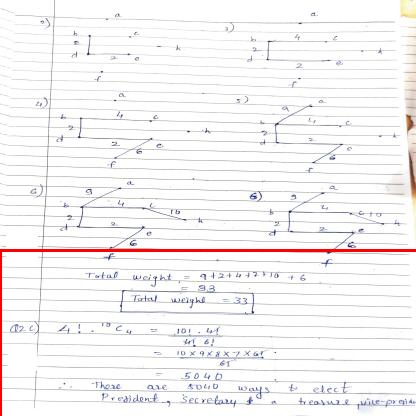 2) a
b c
2 h
d 2 e
f
3) a
b 4 c
2 h
d 2 e
f
4) a
b 4 c
2 h
d 2 e
6
f
5) a
9
b 4 c
2 h
d 2 e
6
f
6) 9 a
b 4 c
2 10
d 2 e h
6
f
6) 9 a
b 4 c 10
2 h
d 2 e
6
f
Total weight = 9+2+4+7+10+6
= 33
Total weight = 33
Q2 C) 4! . ¹⁰C₄ = 10! . 4!
4! 6!
= 10×9×8×7×6!
6!
= 5040
∴ There are 5040 ways to elect
President, secretary & a treasure, vice-presid